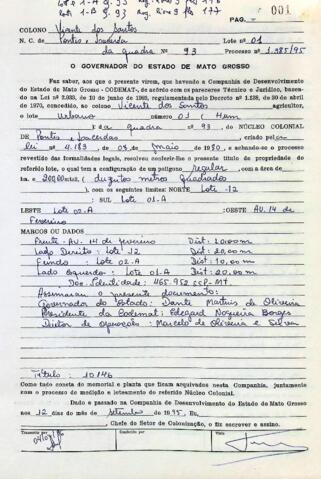 Lote 1-A Q. 93 Reg. livro 3 fls 176
Lote 1-B Q. 93 Reg. livro 3 fls 177
PAG. 001
COLONO Vicente dos Santos
N. C. de Pontes e Lacerda Lote nº 01
da quadra nº 93 Processo nº 1.985/95
O GOVERNADOR DO ESTADO DE MATO GROSSO
Faz saber, aos que o presente virem, que havendo a Companhia de Desenvolvimento
do Estado de Mato Grosso - CODEMAT-, de acôrdo com os pareceres Técnico e Jurídico, basea-
dos na Lei nº 2.035, de 10 de junho de 1963, regulamentada pelo Decreto nº 1.138, de 20 de abril
de 1970, concedido, ao colono Vicente dos Santos agricultor,
o lote Urbano número 01 (Hum
) da quadra nº 93, do NÚCLEO COLONIAL
DE Pontes e Lacerda, criado pela
lei nº 4.183, de 08 de maio de 1980, e achando-se o processo
revestido das formalidades legais, resolveu conferir-lhe o presente título de propriedade do
referido lote, o qual tem a configuração de um polígono regular, com a área de
ha. e 200,00 mts2. (duzentos metros quadrados
), com os seguintes limites: NORTE Lote -12
: SUL Lote 01-A
LESTE Lote 02-A :OESTE AV. 14 de
Fevereiro
MARCOS OU DADOS
Frente - AV. 14 de fevereiro Dist: 10,00 m
Lado Direito: Lote 12 Dist: 20,00 m
Fundo: Lote 02-A Dist: 10,00 m
Lado Esquerdo: Lote 01-A Dist: 20,00 m
Doc. Identidade: 465.952 SSP-MT.
Assinaram o presente documento:
Governador do Estado: Dante Martins de Oliveira
Presidente da Codemat: Edegard Nogueira Borges
Diretor de Operação: Marcelo de Oliveira e Silva
Título: 10146
Como tudo consta do memorial e planta que ficam arquivados nesta Companhia, juntamente
com o processo de medição e loteamento do referido Núcleo Colonial.
Dado e passado na Companhia de Desenvolvimento do Estado de Mato Grosso
aos 12 dias do mês de setembro de 1995, Eu,
, Chefe do Setor de Colonização, o fiz escrever e assino.
Transcrito por
Conferido por
Visto